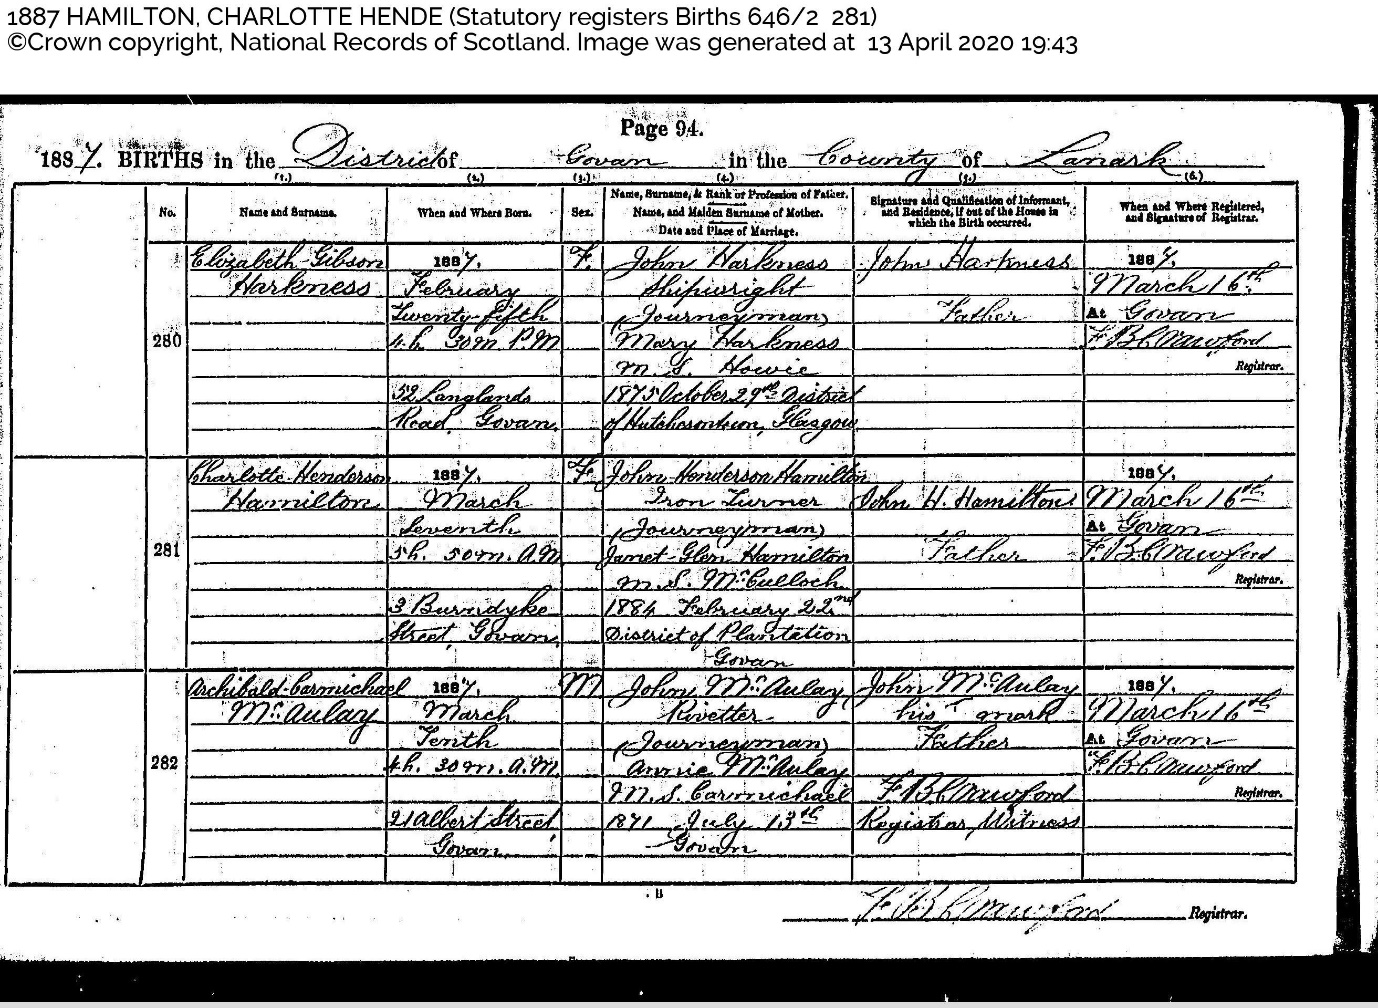 1887 HAMILTON, CHARLOTTE HENDE (Statutory registers Births 646/2 281)
©Crown copyright, National Records of Scotland. Image was generated at 13 April 2020 19:43
Page 94.
1887. BIRTHS in the District of Govan in the County of Lanark
(1.) (2.) (3.) (4.) (5.) (6.)
No.
Name and Surname.
When and Where Born.
Sex.
Name, Surname, & Rank or Profession of Father.
Name, and Maiden Surname of Mother.
Date and Place of Marriage.
Signature and Qualification of Informant,
and Residence, if out of the House in
which the Birth occurred.
When and Where Registered,
and Signature of Registrar.
280
Elizabeth Gibson
Harkness
1887.
February
Twenty-fifth
4h. 30m. P.M
52 Langlands
Road, Govan.
F.
John Harkness
Shipwright
(Journeyman)
Mary Harkness
m.S. Howie
1875 October 29th District
of Hutchesontown, Glasgow
John Harkness
Father
1887.
March 16th
At Govan
F. B Crawford
Registrar.
281
Charlotte Henderson
Hamilton
1887.
March
Seventh
5h. 50m. A.M
3 Burndyke
Street, Govan.
F.
John Henderson Hamilton
Iron Turner
(Journeyman)
Janet Glen Hamilton
m.S. McCulloch
1884 February 22nd
District of Plantation
Govan
John H. Hamilton
Father
1887.
March 16th
At Govan
F. B Crawford
Registrar.
282
Archibald Carmichael
McAulay
1887.
March
Tenth
4h. 30m. A.M.
21 Albert Street
Govan.
M
John McAulay
Rivetter
(Journeyman)
Annie McAulay
M.S. Carmichael
1871 July 13th
Govan
John McAulay
his + mark
Father
F. B Crawford
Registrar, Witness
1887.
March 16th
At Govan
F. B Crawford
Registrar.
B
F. B Crawford Registrar.